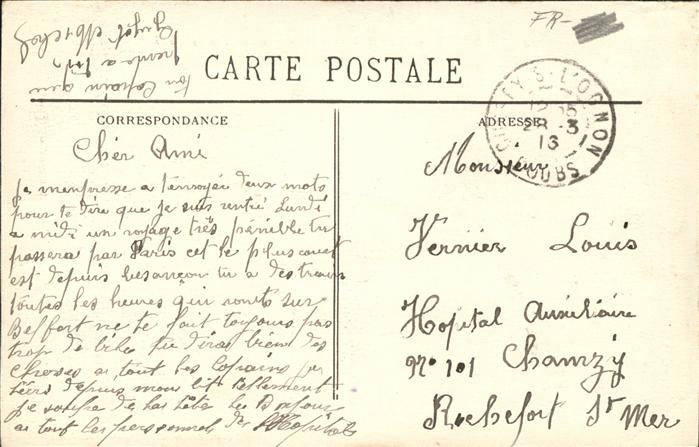 FR-
CARTE POSTALE
CORRESPONDANCE
ADRESSE
CUSSEY S. L'OGNON
28 -3
DOUBS
Chér Ami
Je m'enpresse a t'envoyée deux mots
pour te dire que je suis rentré Lundi
a midi un voyage très pénible tu
passera par Paris cet le plus court
est depuis besançon tu a des trains
toutes les heures qui vonts sur
Belfort ne te fait toujours pas
trop de bile tu diras bien des
choses a tout les Copains
depuis mon lit tellement
je soufra de la tête le Bonjour
a tout les personnel de l'Hopital
ton Copain qui
pense a toi
Monsieur
Vernier Louis
Hopital Auxiliaire
N° 101 Chanzÿ
Rochefort St Mer